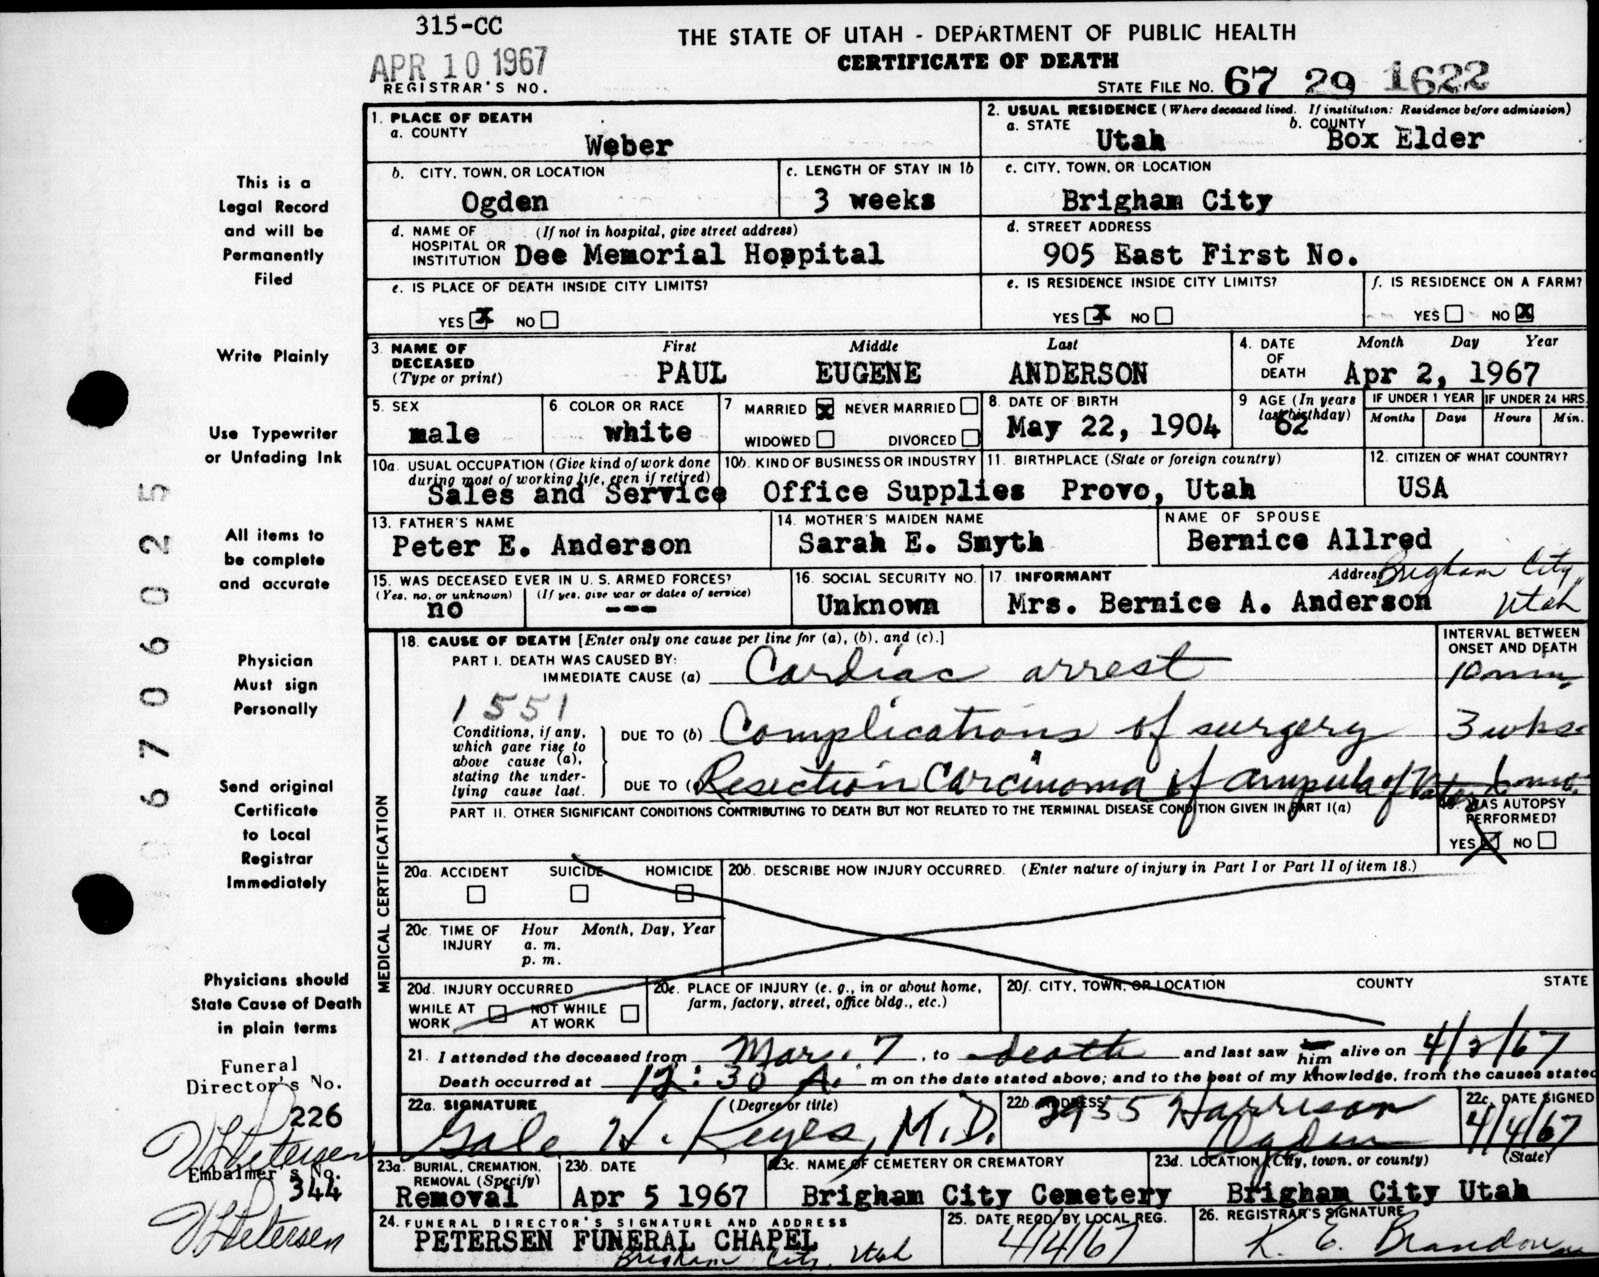 315-CC
APR 10 1967
REGISTRAR'S NO.
THE STATE OF UTAH - DEPARTMENT OF PUBLIC HEALTH
CERTIFICATE OF DEATH
STATE FILE NO. 67 29 1622
This is a
Legal Record
and will be
Permanently
Filed
Write Plainly
Use Typewriter
or Unfading Ink
All items to
be complete
and accurate
Physician
Must sign
Personally
Send original
Certificate
to Local
Registrar
Immediately
Physicians should
State Cause of Death
in plain terms
Funeral
Director's No.
226
V L Petersen
Embalmer's No.
344
V L Petersen
67 06025
1. PLACE OF DEATH
a. COUNTY
Weber
2. USUAL RESIDENCE (Where deceased lived. If institution: Residence before admission)
a. STATE Utah b. COUNTY Box Elder
b. CITY, TOWN, OR LOCATION
Ogden
c. LENGTH OF STAY IN 1b
3 weeks
c. CITY, TOWN, OR LOCATION
Brigham City
d. NAME OF (If not in hospital, give street address)
HOSPITAL OR
INSTITUTION Dee Memorial Hospital
d. STREET ADDRESS
905 East First No.
e. IS PLACE OF DEATH INSIDE CITY LIMITS?
YES X NO
e. IS RESIDENCE INSIDE CITY LIMITS?
YES X NO
f. IS RESIDENCE ON A FARM?
YES NO X
3. NAME OF
DECEASED
(Type or print)
First Middle Last
PAUL EUGENE ANDERSON
4. DATE
OF
DEATH
Month Day Year
Apr 2, 1967
5. SEX
male
6 COLOR OR RACE
white
7 MARRIED X NEVER MARRIED
WIDOWED DIVORCED
8. DATE OF BIRTH
May 22, 1904
9 AGE (In years
last birthday)
62
IF UNDER 1 YEAR
Months Days
IF UNDER 24 HRS.
Hours Min.
10a. USUAL OCCUPATION (Give kind of work done
during most of working life, even if retired)
Sales and Service
10b. KIND OF BUSINESS OR INDUSTRY
Office Supplies
11. BIRTHPLACE (State or foreign country)
Provo, Utah
12. CITIZEN OF WHAT COUNTRY?
USA
13. FATHER'S NAME
Peter E. Anderson
14. MOTHER'S MAIDEN NAME
Sarah E. Smyth
NAME OF SPOUSE
Bernice Allred
15. WAS DECEASED EVER IN U.S. ARMED FORCES?
(Yes, no, or unknown) (If yes, give war or dates of service)
no ---
16. SOCIAL SECURITY NO.
Unknown
17. INFORMANT
Mrs. Bernice A. Anderson
Address Brigham City,
Utah
MEDICAL CERTIFICATION
18. CAUSE OF DEATH [Enter only one cause per line for (a), (b), and (c).]
PART I. DEATH WAS CAUSED BY:
IMMEDIATE CAUSE (a) Cardiac arrest
INTERVAL BETWEEN
ONSET AND DEATH
10 min.
1551
Conditions, if any,
which gave rise to
above cause (a),
stating the under-
lying cause last.
DUE TO (b) Complications of surgery 3 wks.
DUE TO ( Resection Carcinoma of ampula of Vater 6 mos.
PART II. OTHER SIGNIFICANT CONDITIONS CONTRIBUTING TO DEATH BUT NOT RELATED TO THE TERMINAL DISEASE CONDITION GIVEN IN PART I(a)
19. WAS AUTOPSY
PERFORMED?
YES X NO
20a. ACCIDENT SUICIDE HOMICIDE
20b. DESCRIBE HOW INJURY OCCURRED. (Enter nature of injury in Part I or Part II of item 18.)
20c. TIME OF
INJURY
Hour Month, Day, Year
a. m.
p. m.
20d. INJURY OCCURRED
WHILE AT
WORK
NOT WHILE
AT WORK
20e. PLACE OF INJURY (e. g., in or about home,
farm, factory, street, office bldg., etc.)
20f. CITY, TOWN, OR LOCATION COUNTY STATE
21. I attended the deceased from Mar. 7, to death and last saw him alive on 4/2/67
Death occurred at 12:30 A. m on the date stated above; and to the best of my knowledge, from the causes stated
22a. SIGNATURE (Degree or title)
Gale H. Keyes, M.D.
22b. ADDRESS
2955 Harrison
Ogden
22c. DATE SIGNED
4/4/67
23a. BURIAL, CREMATION,
REMOVAL (Specify)
Removal
23b. DATE
Apr 5 1967
23c. NAME OF CEMETERY OR CREMATORY
Brigham City Cemetery
23d. LOCATION (City, town, or county) (State)
Brigham City Utah
24. FUNERAL DIRECTOR'S SIGNATURE AND ADDRESS
PETERSEN FUNERAL CHAPEL
Brigham City, Utah
25. DATE REC'D BY LOCAL REG.
4/4/67
26. REGISTRAR'S SIGNATURE
K. E. Brandon